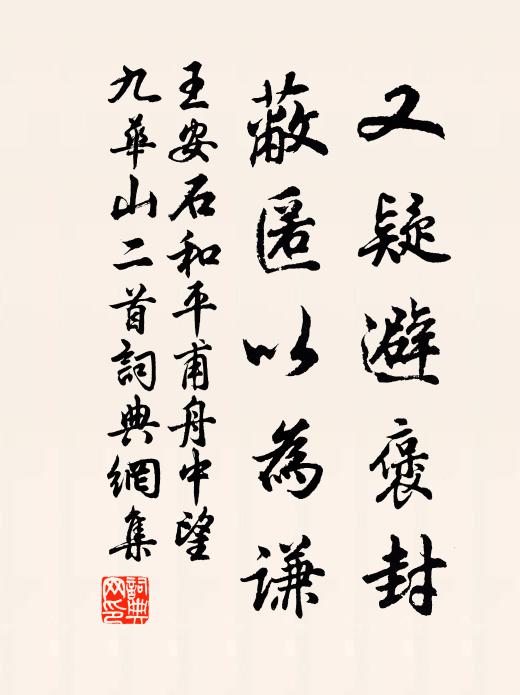 又疑避褒封
蔽匿以為谦
王安石和平甫舟中望
九華山二首詞典網集
詞典網印